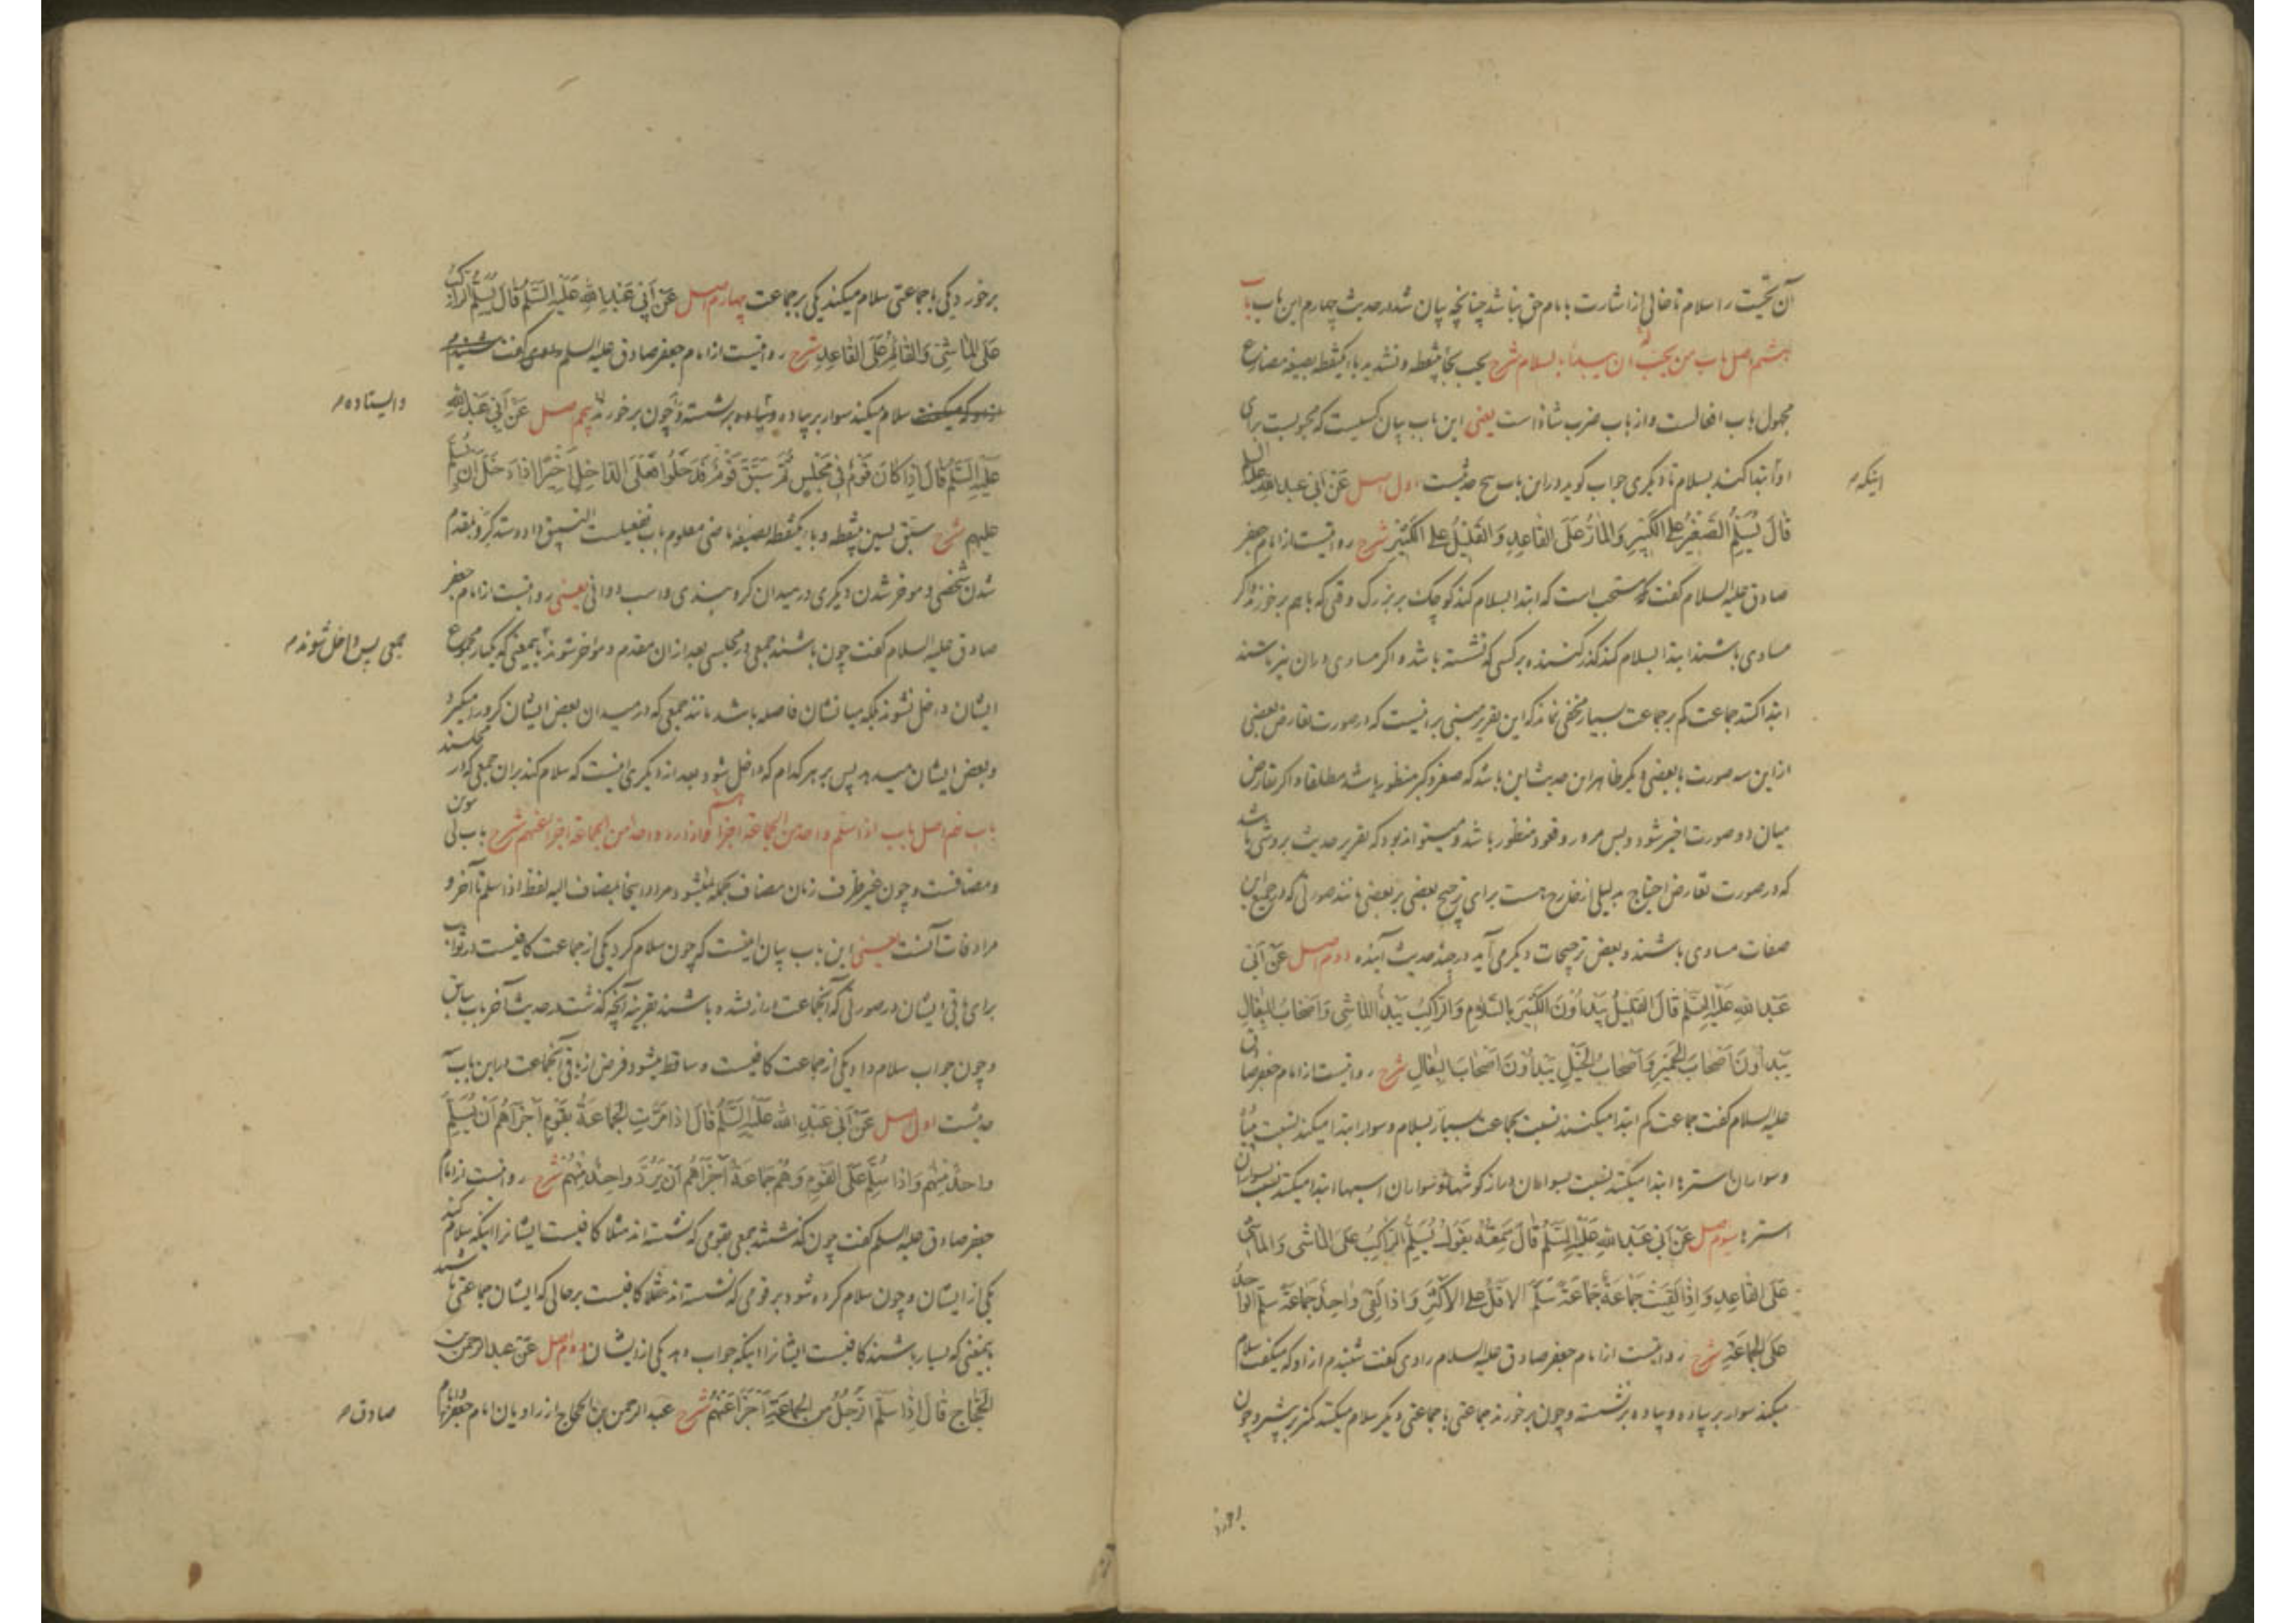 آن تحیت را سلام تا خالی از اشارت بامام حق نباشد چنانچه بیان شد در حدیث چهارم این باب باب
هشتم اصل باب من یجب ان یبدأ بالسلام شرح یجب بجا ینقطه و تشدید باء یکنقطه بصیغه مضارع
مجهول باب افعالست و از باب ضرب شاذ است یعنی این باب بیان کسیست که محبوبست برای
او ابتدا کند بسلام تا دیگری جواب گوید و در این باب پنج حدیثست اول اصل عَن أبی عبد الله علیه السلام
اینکه م
قالَ یُسَلِّمُ الصَّغیرُ عَلَی الکَبیرِ وَالمارُّ عَلَی القاعِدِ وَ القَلیلُ عَلَی الکَثیرِ شرح روایتست از امام جعفر
صادق علیه السلام گفت که مستحب است که ابتدا بسلام کند کوچک بر بزرگ وقتی که باهم برخورند و اگر
مساوی باشند ابتدا بسلام کند گذر کننده بر کسی که نشسته باشد و اگر مساوی در آن نیز باشند
ابتدا کند جماعت کم بر جماعت بسیار مخفی نماند که این تقریر مبنی بر اینست که در صورت تعارض بعضی
از این سه صورت با بعضی دیگر ظاهر این حدیث این باشد که صغر و کبر منظور باشد مطلقا و اگر تعارض
میان دو صورت اخیر شود پس مرور و قعود منظور باشد و میتواند بود که تقریر حدیث بروشی باشد
که در صورت تعارض احتیاج بدلیلی از خارج هست برای ترجیح بعضی بر بعضی مانند صورتی که در جمیع این
صفات مساوی باشند و بعض ترجیحات دیگر می آید در چند حدیث آینده دوم اصل عَن أبی
عَبدِ اللهِ عَلَیهِ السَّلامُ قالَ القَلیلُ یَبدَأونَ الکَثیرَ بِالسَّلامِ وَالرّاکِبُ یَبدَأُ الماشِیَ وَاَصحابُ البِغالِ
یَبدَأونَ اَصحابَ الحَمیرِ وَاَصحابُ الخَیلِ یَبدَأونَ اَصحابَ البِغالِ شرح روایتست از امام جعفر صادق
علیه السلام گفت جماعت کم ابتدا میکنند نسبت بجماعت بسیار بسلام و سوار ابتدا میکند نسبت بپیاده
و سواران استرها ابتدا میکنند نسبت بسواران دراز گوشها و سواران اسبها ابتدا میکنند نسبت بسواران
استرها سوم اصل عَن أبی عَبدِ اللهِ عَلَیهِ السَّلامُ قالَ سَمِعتُهُ یَقولُ یُسَلِّمُ الرّاکِبُ عَلَی الماشی وَ الماشی
عَلَی القاعِدِ وَ اِذا لَقِیَت جَماعَةٌ جَماعَةً سَلَّمَ الاَقَلُّ عَلَی الاَکثَرِ وَ اِذا لَقِیَ واحِدٌ جَماعَةً سَلَّمَ الواحِدُ
عَلَی الجَماعَةِ شرح روایتست از امام جعفر صادق علیه السلام راوی گفت شنیدم از او که میگفت سلام
میکند سوار بر پیاده و پیاده بر نشسته و چون برخورند جماعتی با جماعتی دیگر سلام میکند کمتر بر بیشتر و چون
برخورد
برخورد یکی با جماعتی سلام میکند یکی بر جماعت چهارم اصل عَن أبی عَبدِ اللهِ عَلَیهِ السَّلامُ قالَ یُسَلِّمُ الراکِبُ
عَلَی الماشی وَالقائِمُ عَلَی القاعِدِ شرح روایتست از امام جعفر صادق علیه السلام راوی گفت شنیدم
از او که میگفت سلام میکند سوار بر پیاده و ایستاده بر نشسته و چون برخورند پنجم اصل عَن أبی عَبدِ اللهِ
و ایستاده م
عَلَیهِ السَّلامُ قالَ اِذا کانَ قَومٌ فی مَجلِسٍ ثُمَّ سَبَّقَ قَومٌ فَدَخَلوا فَعَلَی الداخِلِ اَخیرًا اِذا دَخَلَ اَن یُسَلِّمَ
عَلَیهِم شرح سبّق بسین بینقطه و باء یکنقطه بصیغه ماضی معلوم باب تفعیلست التسبیق دادوستد گرو و مقدم
شدن شخصی و موخر شدن دیگری در میدان گرو بندی و اسب دوانی یعنی روایتست از امام جعفر
صادق علیه السلام گفت چون باشند جمعی در مجلسی بعد از آن مقدم و مؤخر شوند باینمعنی که یکبار مجموع
جمعی پس داخل شوند م
ایشان داخل نشوند بلکه میانشان فاصله باشد مانند جمعی که در میدان بعض ایشان گرو را میگیرد
و بعض ایشان میدهد پس بر هر کدام که داخل شود بعد از دیگری اینست که سلام کند بر آن جمعی که در مجلسند
باب نهم اصل باب اذا سلّم واحد من الجماعة اجزأهم و اذا رد واحد من الجماعة اجزأ عنهم شرح باب بی تنوین
و مضافست و چون غیر ظرف زمان مضاف بجمله نمیشود مراد اینجا بمضاف الیه لفظ اذا سلّم تا آخر و
مرادفات آنست یعنی این باب بیان اینست که چون سلام کرد یکی از جماعت کافیست در ثواب
برای باقی ایشان در صورتی که آنجماعت دراز نشده باشند بقرینه آنچه گذشت در حدیث آخر باب سابق
و چون جواب سلام داد یکی از جماعت کافیست و ساقط میشود فرض از باقی آنجماعت در این باب سه
حدیثست اول اصل عَن أبی عَبدِ الله عَلَیهِ السَّلامُ قالَ اِذا مَرَّتِ الجَماعَةُ بِقَومٍ اَجزَأَهُم اَن یُسَلِّمَ
واحِدٌ مِنهُم وَ اِذا سُلِّمَ عَلَی القَومِ وَ هُم جَماعَةٌ اَجزَأَهُم اَن یَرُدَّ واحِدٌ مِنهُم شرح روایتست از امام
جعفر صادق علیه السلم گفت چون گذشتند جمعی بقومی که نشسته اند مثلا کافیست ایشانرا اینکه سلام کند
یکی از ایشان و چون سلام کرده شود بر قومی که نشسته اند مثلا کافیست بر حالی که ایشان جماعتی باشند
باینمعنی که بسیار باشند کافیست ایشانرا اینکه جواب دهد یکی از ایشان دوم اصل عَن عبد الرحمن بن
الحَجّاجِ قالَ اِذا سَلَّمَ الرَّجُلُ مِنَ الجَماعَةِ اَجزَأَ عَنهُم شرح عبد الرحمن بن الحجاج از راویان امام جعفر
صادق م